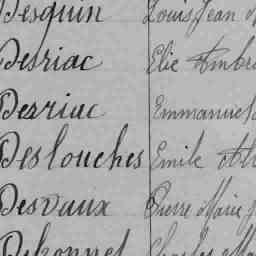 Desquin Louis Jean
Desriac Elie Ambr
Desriac Emmanuel
Deslouches Emile
Desvaux Pierre Marie
Charles